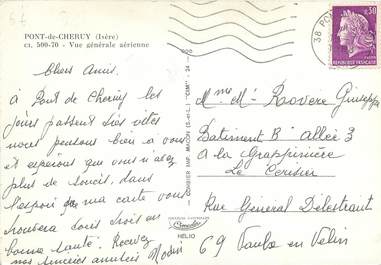 PONT-de-CHERUY (Isère)
CI. 500-70 - Vue générale aérienne
38 PO
0,30
REPUBLIQUE FRANÇAISE
Chers Amis.
A Pont de Cheruy les
jours passent très vites
nous pensons bien à vous
et espérons que vous n'avez
plus de soucis, dans
l'espoir que ma carte vous
trouvera tous trois en
bonne santé. Recevez
nos sincères amitiés
COMBIER IMP. MACON (S.-et-L.) "CIM"
Combier
HELIO
Mme Mr Rovere Giuseppe
Batiment B Allée 3
A la Grappinière
Le Cerisier
Rue Général Delestraint
69 Vaulx en Velin